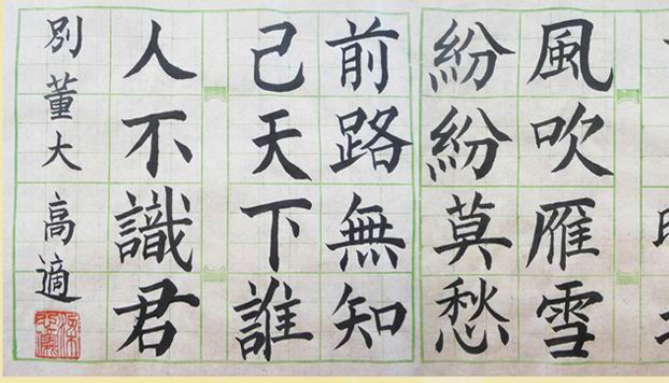 風吹雁雪
紛紛莫愁
前路無知
己天下誰
人不識君
別董大 高適